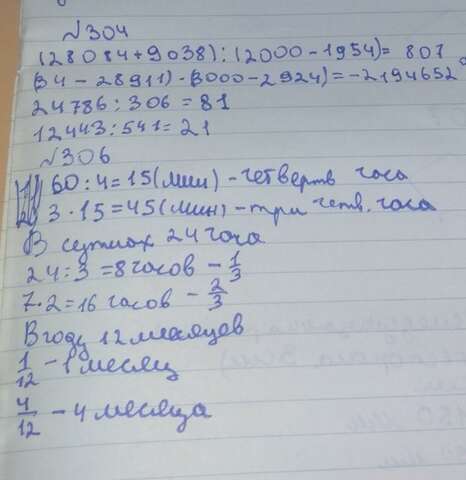 №304
(28084+9038):(2000-1954)= 807
34 - 28911) · (3000-2924)=-2194652
24786:306=81
12443:541=21
№306
60:4=15(мин) - четверть часа
3·15=45(мин) - три четв. часа
В сутках 24 часа
24:3=8 часов - 1/3
7·2=16 часов - 2/3
В году 12 месяцев
1/12 - 1 месяц
4/12 - 4 месяца